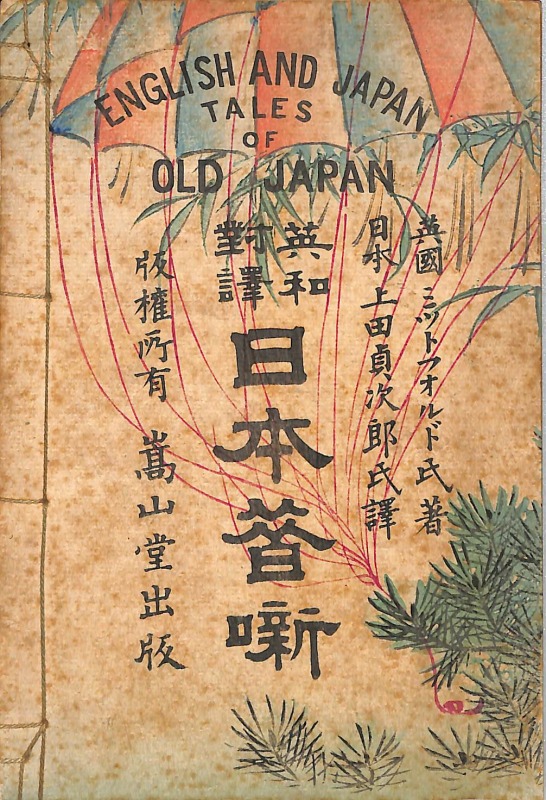 ENGLISH AND JAPAN
TALES
OF
OLD JAPAN
英國 ミットフオルド氏著
日本 上田貞次郎氏譯
英和
對譯
日本昔噺
版權所有 嵩山堂出版